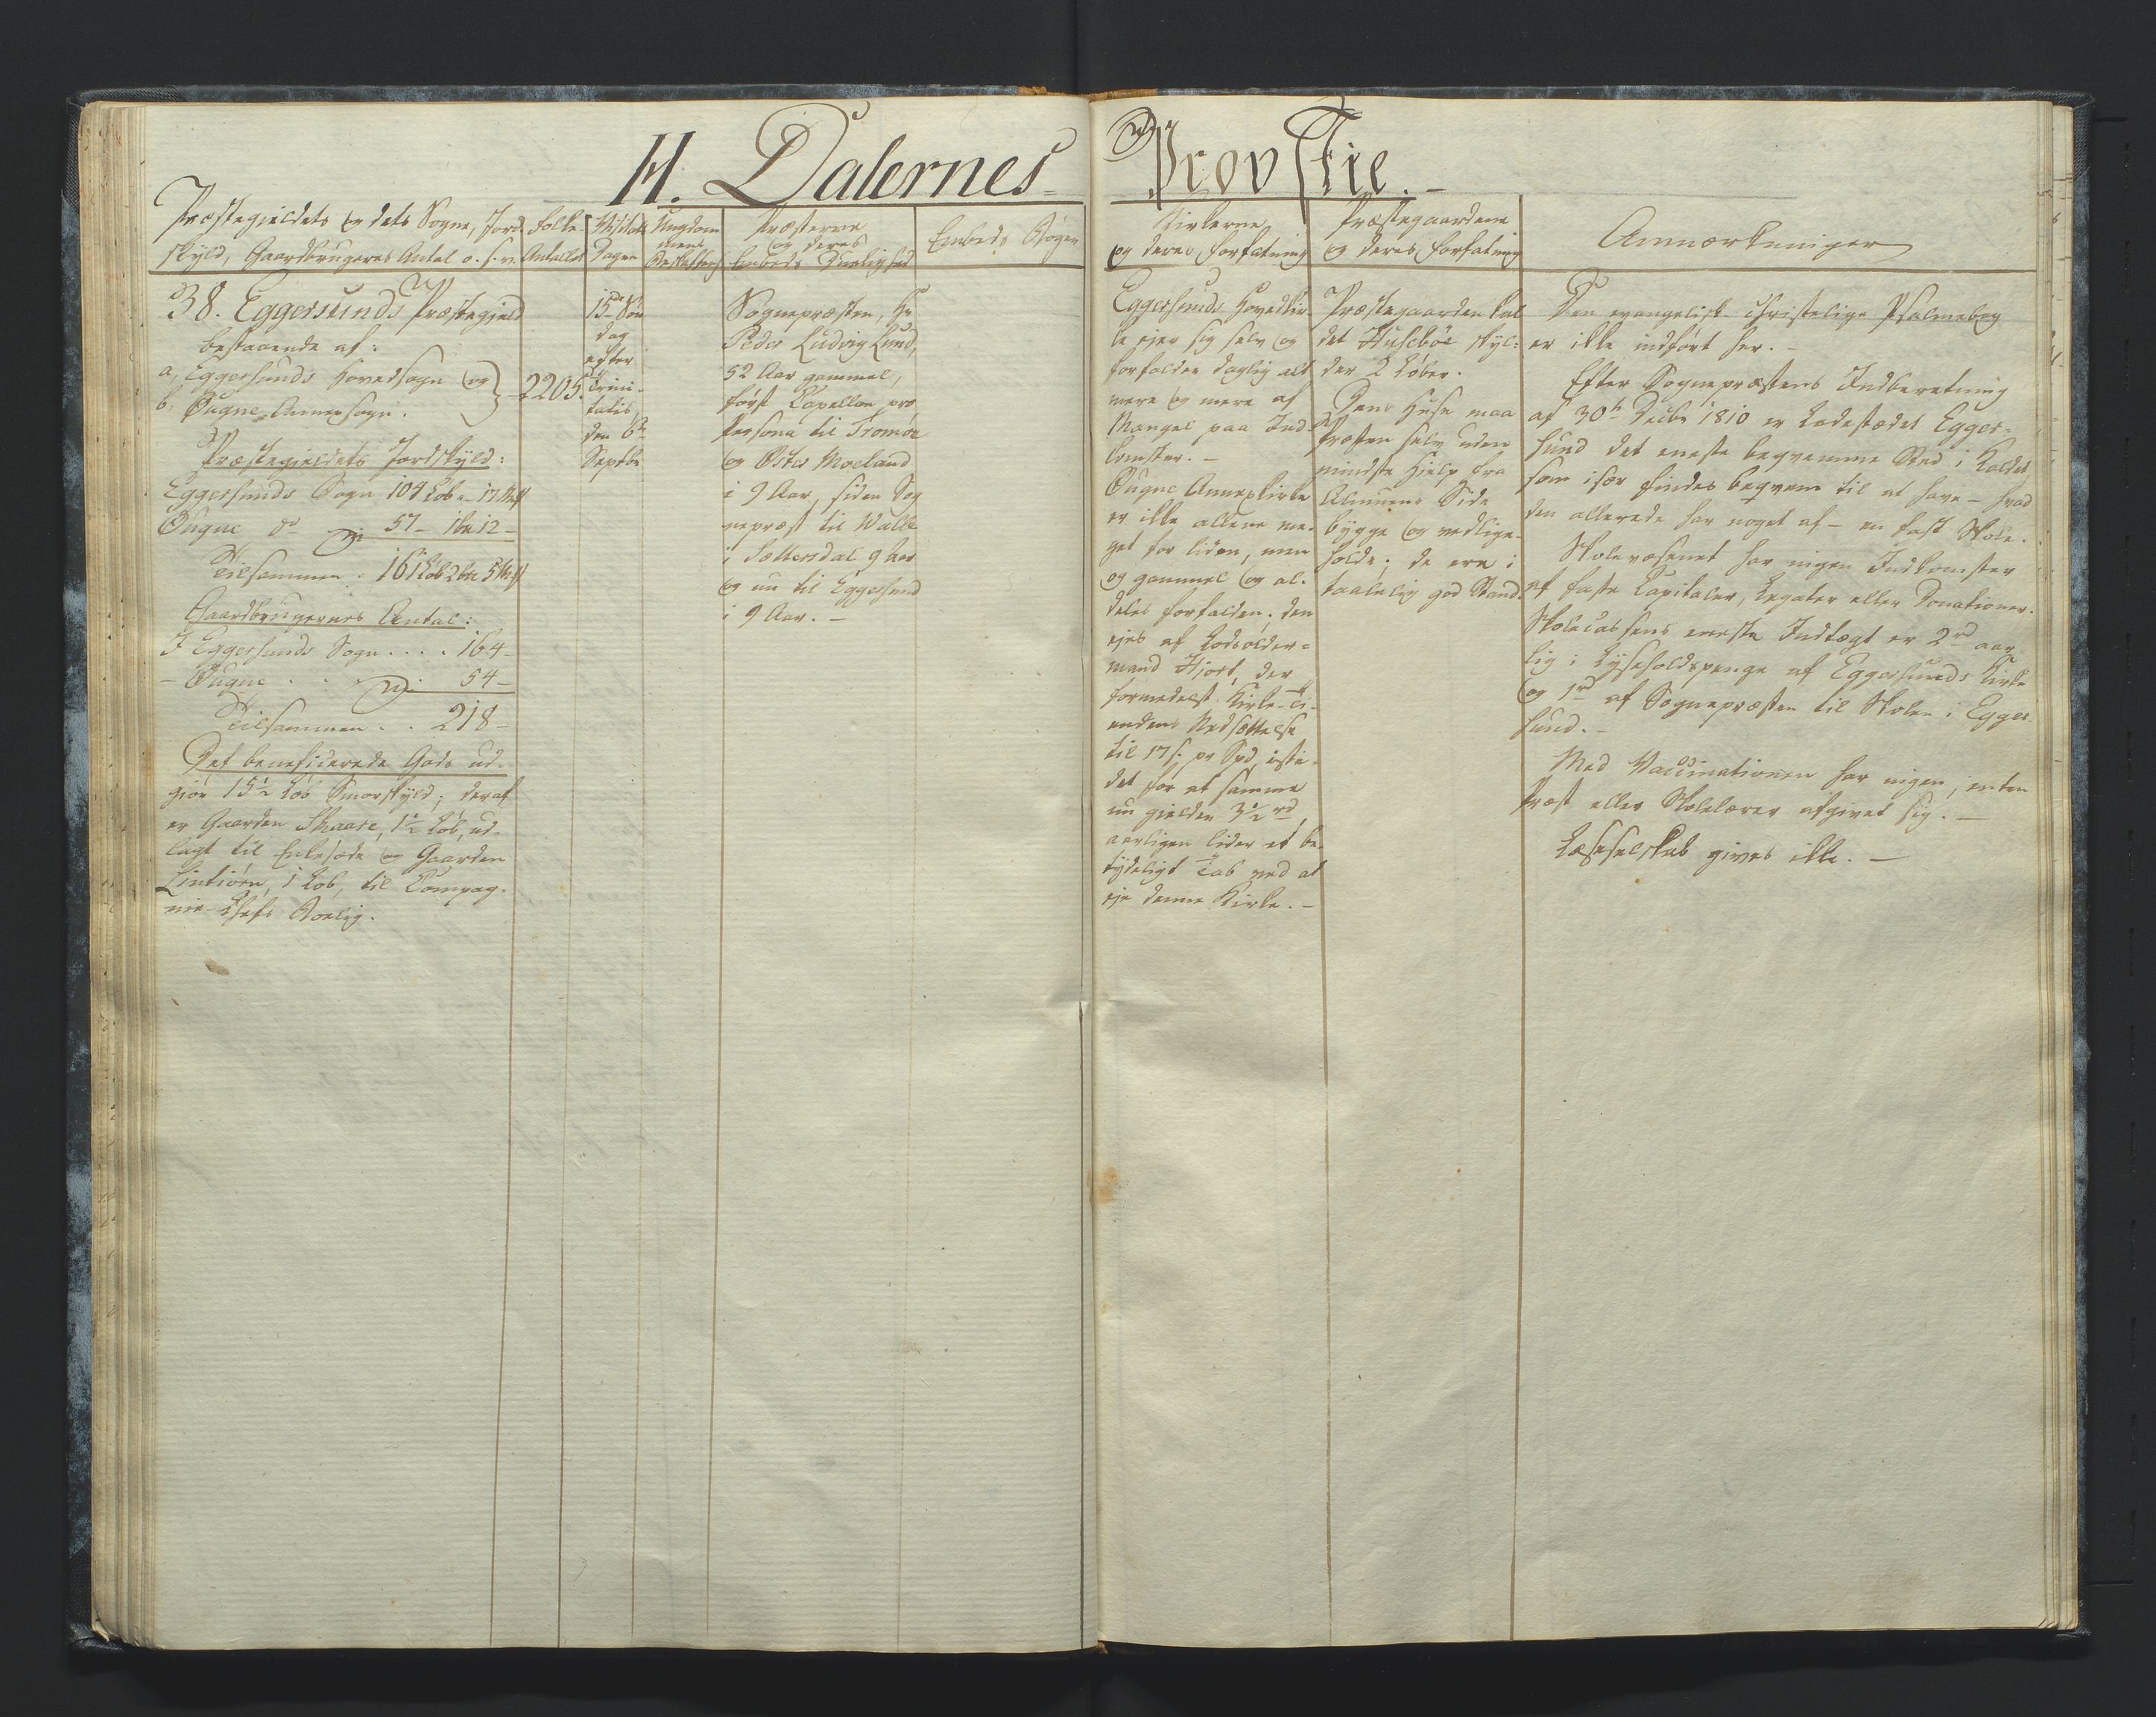 H. Dalernes Provstie.
Præstegieldets og dets Sogne, Jord
skyld, Gaardbrugeres Antal o. s. v.
Folke-
Antallet
Visitats
Dagen
Ungdom
mens
Beskaffenh
Præsterne
og deres
Embeds Duelighed
Embeds Bøger
38. Eggersunds Præstegjeld
bestaaende af:
a, Eggersunds Hovedsogn og
b, Ougne Annexsogn.
Præstegjeldets Jordskyld:
Eggersunds Sogn 104 Løb - 17 Mk
Ougne do 57 - 1 - 12 -
Tilsammen: 161 Løb 2 5 Mk
Gaardbrugernes Antal:
I Eggersunds Sogn . . . . 164 -
- Ougne . . 54 -
Tilsammen . . 218 -
Det beneficerede Gods ud-
giør 15½ Løb Smørskyld; deraf
er Gaarden Skaare, 1½ Løb, ud-
lagt til Enkesæde og Gaarden
Lintiørn, 1 Løb, til Compag-
nie-Chefs Boelig.
2205.
15de Søn
dag
efter
Trini-
tatis,
den 6te
Septbr
Sognepræsten, Hr
Peder Ludvig Lund,
52 Aar gammel,
først Capellan pro
persona til Tromøe
og Øster Moeland
i 9 Aar, siden Sog
nepræst til Walle
i Sættersdal 9 Aar
og nu til Eggersund
i 9 Aar. -
Kirkerne
og deres Forfatning
Præstegaardene
og deres Forfatning
Anmærkninger
Eggersunds Hovedkir
ke ejer sig selv og
forfalder daglig alt
mere og mere af
Mangel paa Ind-
komster. -
Ougne Annexkirke
er ikke allene me-
get for liden, men
og gammel og al-
deles forfalden; den
ejes af Lodsolder-
mand Hjort, der
formedelst Kirke-Ti-
endens Nedsættelse
til 17 s. pr Spd, iste-
det for at samme
nu gielder 3½ rd,
aarligen lider et be-
tydeligt Tab ved at
eje denne Kirke. -
Præstegaarden kal
det Husebøe skyl-
der 2 Løber.
Dens Huse maa
Præsten selv uden
mindste Hielp fra
Almuens Side
bygge og vedlige-
holde; de ere i
taalelig god Stand.
Den evangelisk-christelige Psalmebog
er ikke indført her. -
Efter Sognepræstens Indberetning
af 30te Decbr 1810 er Ladestædet Egger-
sund det eneste beqvemme Sted i Kaldet
som især findes beqvem til at have - hvad
den allerede har noget af - en fast Skole.
Skolevæsenet har ingen Indkomster
af faste Capitaler, Legater eller Donationer.
Skolecassens eneste Indtægt er 2 rd aar-
lig i Lyseholdspenge af Eggersunds Kirke
og 1 rd af Sognepræsten til Skolen i Egger-
sund. -
Med Vaccinationen har ingen, enten
Præst eller Skolelærer afgivet sig. -
Læseselskab gives ikke. -